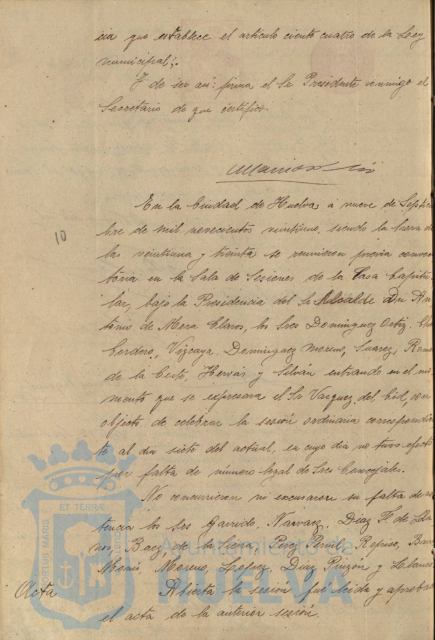 cia que establece el artículo ciento cuatro de la Ley
municipal.
Y de ser así: firma el Sr Presidente conmigo el
Secretario de que certifico.
10
En la Ciudad de Huelva, á nueve de Septiem
bre de mil novecientos veintiuno, siendo la hora de
las veintiuna y treinta se reunieron previa convoca
toria en la Sala de Sesiones de la Casa Capitu
lar, bajo la Presidencia del Sr Alcalde Dn An
tonio de Mora Claros, los Sres Dominguez Ortiz,
Cordero, Vizcaya, Dominguez Moreno, Suarez,
de la Corte, Hervás y Silván entrando en el mo
mento que se expresara el Sr Vazquez del Cid, con
objeto de celebrar la sesión ordinaria correspondien
te al día siete del actual, en cuyo día no tuvo efecto
por falta de número legal de Sres Concejales.
No concurrieron ni excusaron su falta de asis
tencia los Sres Garrido, Narvaez, Diaz F. de
Baez de la Perez
Moreno, Lopez, Diaz Pinzón y
Acta Abierta la sesión fué leida y aproba
el acta de la anterior sesión.
Ayuntamiento de
HUELVA
ET TERRÆ
PORTUS MARIS